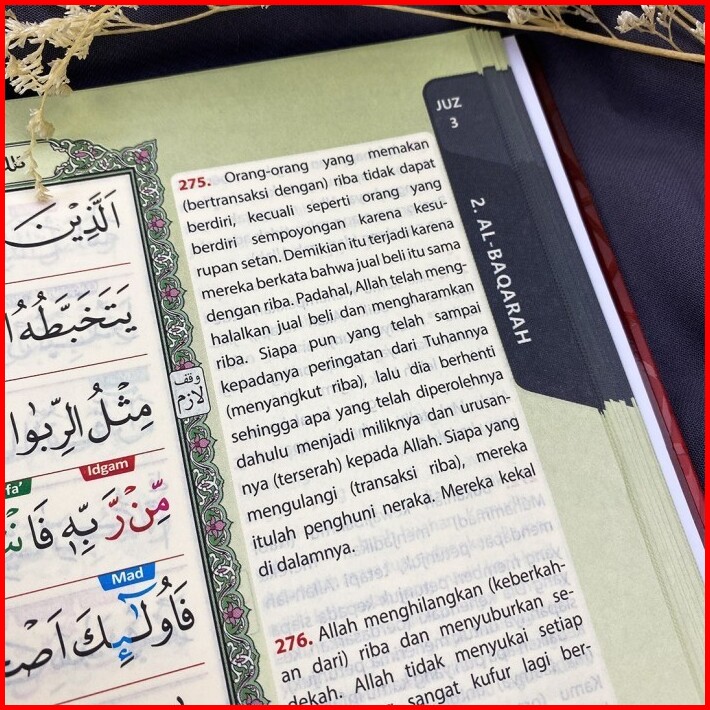 JUZ
3
2. AL-BAQARAH
275. Orang-orang yang memakan
(bertransaksi dengan) riba tidak dapat
berdiri, kecuali seperti orang yang
berdiri sempoyongan karena kesu-
rupan setan. Demikian itu terjadi karena
mereka berkata bahwa jual beli itu sama
dengan riba. Padahal, Allah telah meng-
halalkan jual beli dan mengharamkan
riba. Siapa pun yang telah sampai
kepadanya peringatan dari Tuhannya
(menyangkut riba), lalu dia berhenti
sehingga apa yang telah diperolehnya
dahulu menjadi miliknya dan urusan-
nya (terserah) kepada Allah. Siapa yang
mengulangi (transaksi riba), mereka
itulah penghuni neraka. Mereka kekal
di dalamnya.
276. Allah menghilangkan (keberkah-
an dari) riba dan menyuburkan se-
dekah. Allah tidak menyukai setiap
sangat kufur lagi ber-
Kamu
اَلَّذِيْنَ
يَتَخَبَّطُهُ
وقف لازم
مِثْلُ الرِّبٰوا
Idgam
مِّنْ رَّبِّهٖ
Mad
فَاُولٰۤىِٕكَ